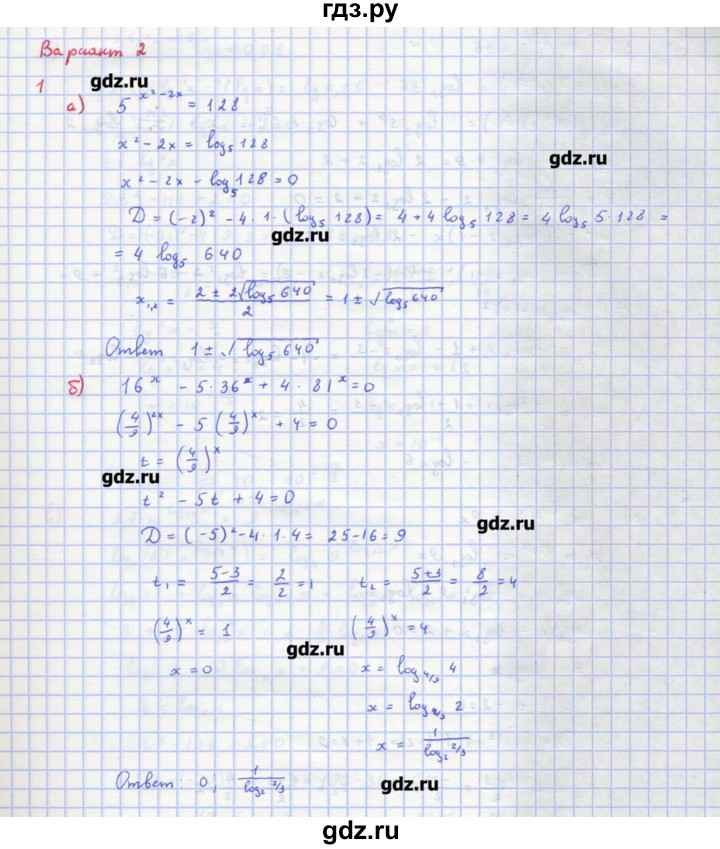 гдз.ру
Вариант 2
gdz.ru
1
а) 5^(x²-2x) = 128
x² - 2x = log₅ 128
gdz.ru
x² - 2x - log₅ 128 = 0
D = (-2)² - 4 · 1 · (log₅ 128) = 4 + 4 log₅ 128 = 4 log₅ 5 · 128 =
gdz.ru
= 4 log₅ 640
x₁,₂ = (2 ± 2√(log₅ 640))/2 = 1 ± √(log₅ 640)
Ответ 1 ± √(log₅ 640)
б) 16^x - 5 · 36^x + 4 · 81^x = 0
(4/9)^(2x) - 5 (4/9)^x + 4 = 0
t = (4/9)^x
gdz.ru
t² - 5t + 4 = 0
gdz.ru
D = (-5)² - 4 · 1 · 4 = 25 - 16 = 9
t₁ = (5-3)/2 = 2/2 = 1 t₂ = (5+3)/2 = 8/2 = 4
(4/9)^x = 1 (4/9)^x = 4
gdz.ru
x = 0 x = log_(4/9) 4
x = log 2
x = 1/(log₂ 2/3)
Ответ: 0; 1/(log₂ 2/3)
gdz.ru
gdz.ru